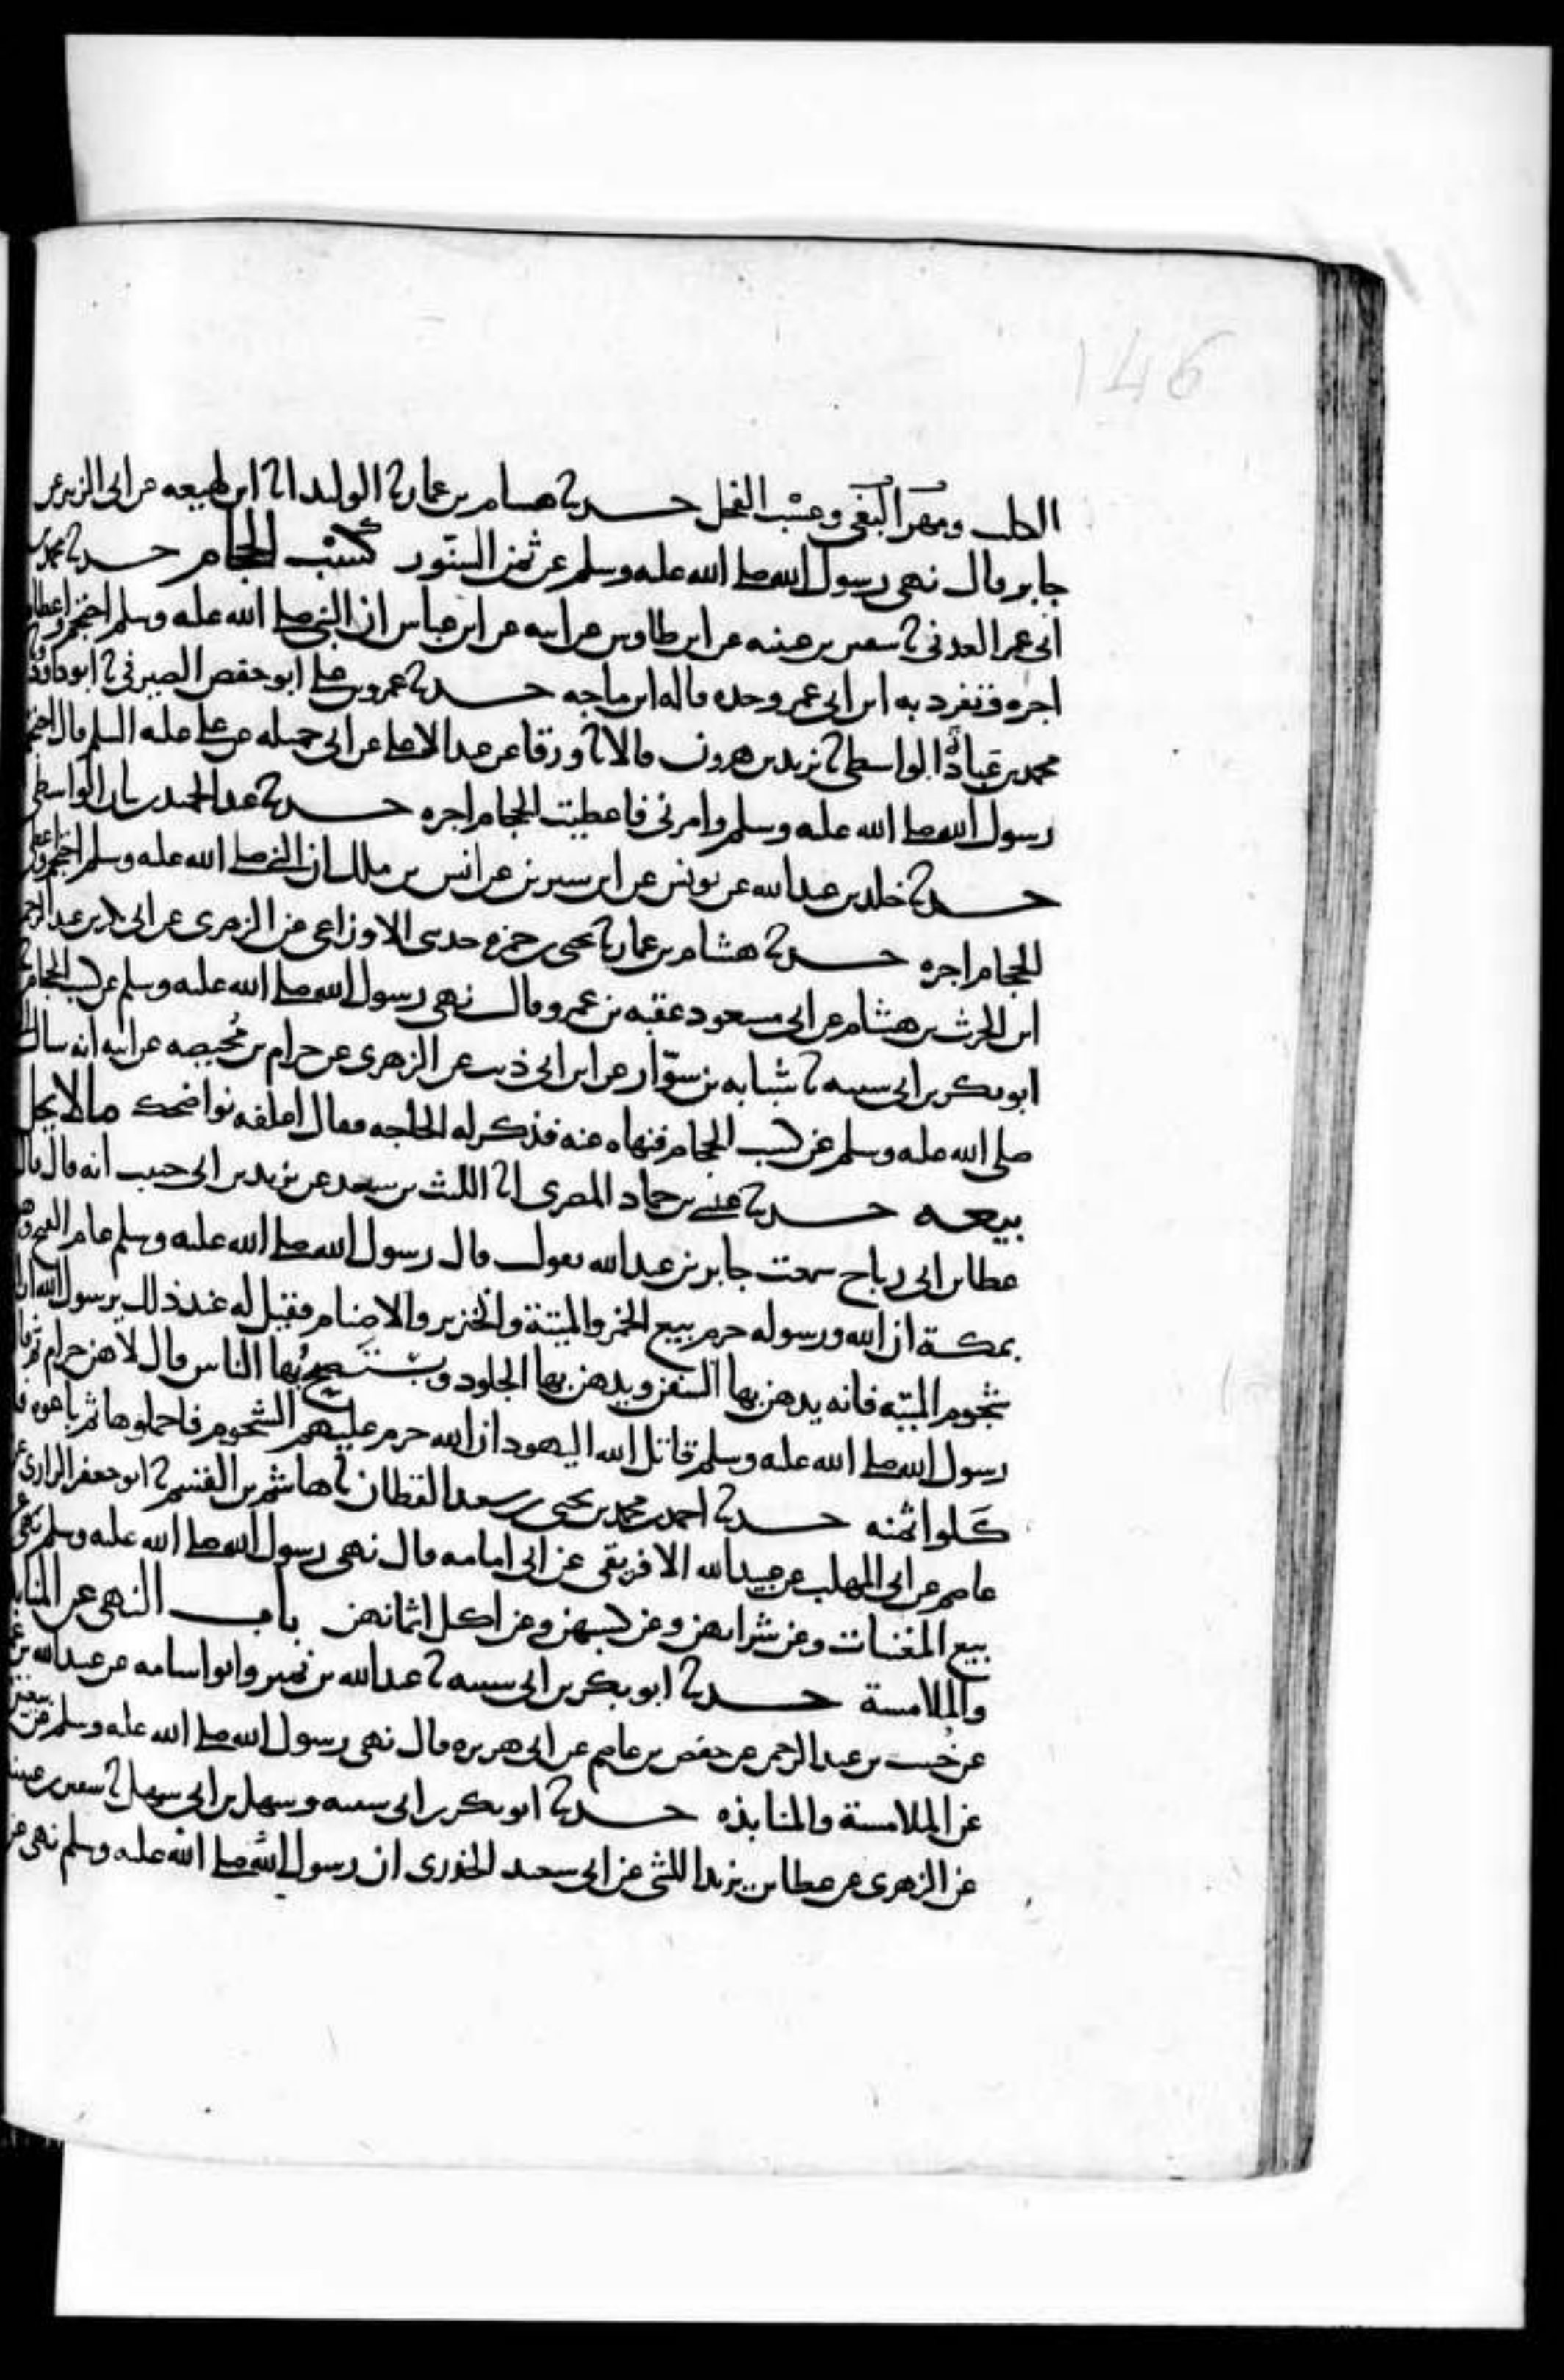 146
الكلب ومهر البغي وعسب الفحل حدثنا هشام بن عمار نا الوليد انا ابن لهيعه عن ابى الزبير عن
جابر قال نهى رسول الله صلى الله عليه وسلم عن ثمن السنّور كسب الحجام حدثنا محمد بن
ابى عمر العدنى نا سفين بن عيينه عن ابن طاوس عن ابيه عن ابن عباس ان النبي صلى الله عليه وسلم احتجم واعطاه
اجره تفرد به ابن ابى عمر وحده قاله ابن ماجه حدثنا عمرو بن على ابو حفص الصيرفى نا ابو داود
محمد بن عبادة الواسطى نا يزيد بن هرون قالا نا ورقا عن عبد الاعلى عن ابى جميله عن على عليه السلم قال احتجم
رسول الله صلى الله عليه وسلم وامرنى فاعطيت الحجام اجره حدثنا عبد الحميد بن بيان الواسطى
حدثنا خلد بن عبد الله عن يونس عن ابن سيرين عن انس بن ملك ان النبى صلى الله عليه وسلم احتجم واعطى
الحجام اجره حدثنا هشام بن عمار نا يحيى بن حمزه حدثنى الاوزاعى عن الزهرى عن ابى بكر بن عبد الرحمن
ابن الحرث بن هشام عن ابى مسعود عقبه بن عمرو قال نهى رسول الله صلى الله عليه وسلم عن كسب الحجام
ابو بكر بن ابى شيبه نا شبابه بن سوّار عن ابن ابى ذيب عن الزهرى عن حرام بن مُحيصه عن ابيه انه سال
صلى الله عليه وسلم عن كسب الحجام فنهاه عنه فذكر له الحاجه فقال اعلفه نواضحك مالا يحل
بيعه حدثنا عيسى بن حماد المصرى انا الليث بن سعد عن يزيد بن ابى حبيب انه قال قال
عطا بن ابى رباح سمعت جابر بن عبد الله يقول قال رسول الله صلى الله عليه وسلم عام الفتح وهو
بمكة ان الله ورسوله حرم بيع الخمر والميتة والخنزير والاصنام فقيل له عند ذلك يرسول الله ارا
شحوم الميته فانه يدهن بها السفن ويدهن بها الجلود ويستصبح بها الناس قال لا هن حرام ثم قا
رسول الله صلى الله عليه وسلم قاتل الله اليهود ان الله حرم عليهم الشحوم فاحملوها ثم باعوه فا
كلوا ثمنه حدثنا احمد بن محمد بن يحيى بن سعد القطان نا هاشم بن القسم نا ابو جعفر الرازى عن
عاصم عن ابى المهلب عن عبيد الله الافريقى عن ابى امامه قال نهى رسول الله صلى الله عليه وسلم عن
بيع المغنيات وعن شرايهن وعن كسبهن وعن اكل اثمانهن باب النهى عن المنابذ
والملامسة حدثنا ابو بكر بن ابى شيبه نا عبد الله بن نمير وابو اسامه عن عبيد الله بن عمر
عن خُبيب بن عبد الرحمن عن حفص بن عاصم عن ابى هريره قال نهى رسول الله صلى الله عليه وسلم عن بيعتين
عن الملامسة والمنابذه حدثنا ابو بكر بن ابى شيبه وسهل بن ابى سهل نا سفين بن عيينه
عن الزهرى عن عطا بن يزيد الليثى عن ابى سعيد الخدرى ان رسول الله صلى الله عليه وسلم نهى عن